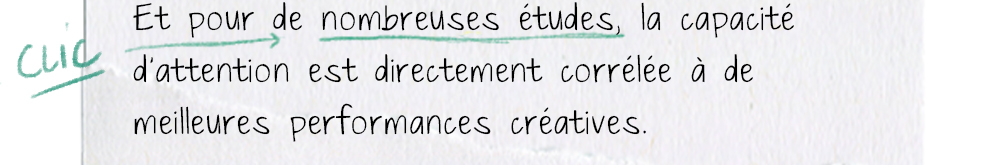 Et pour de nombreuses études, la capacité
CLIC
d'attention est directement corrélée à de
meilleures performances créatives.